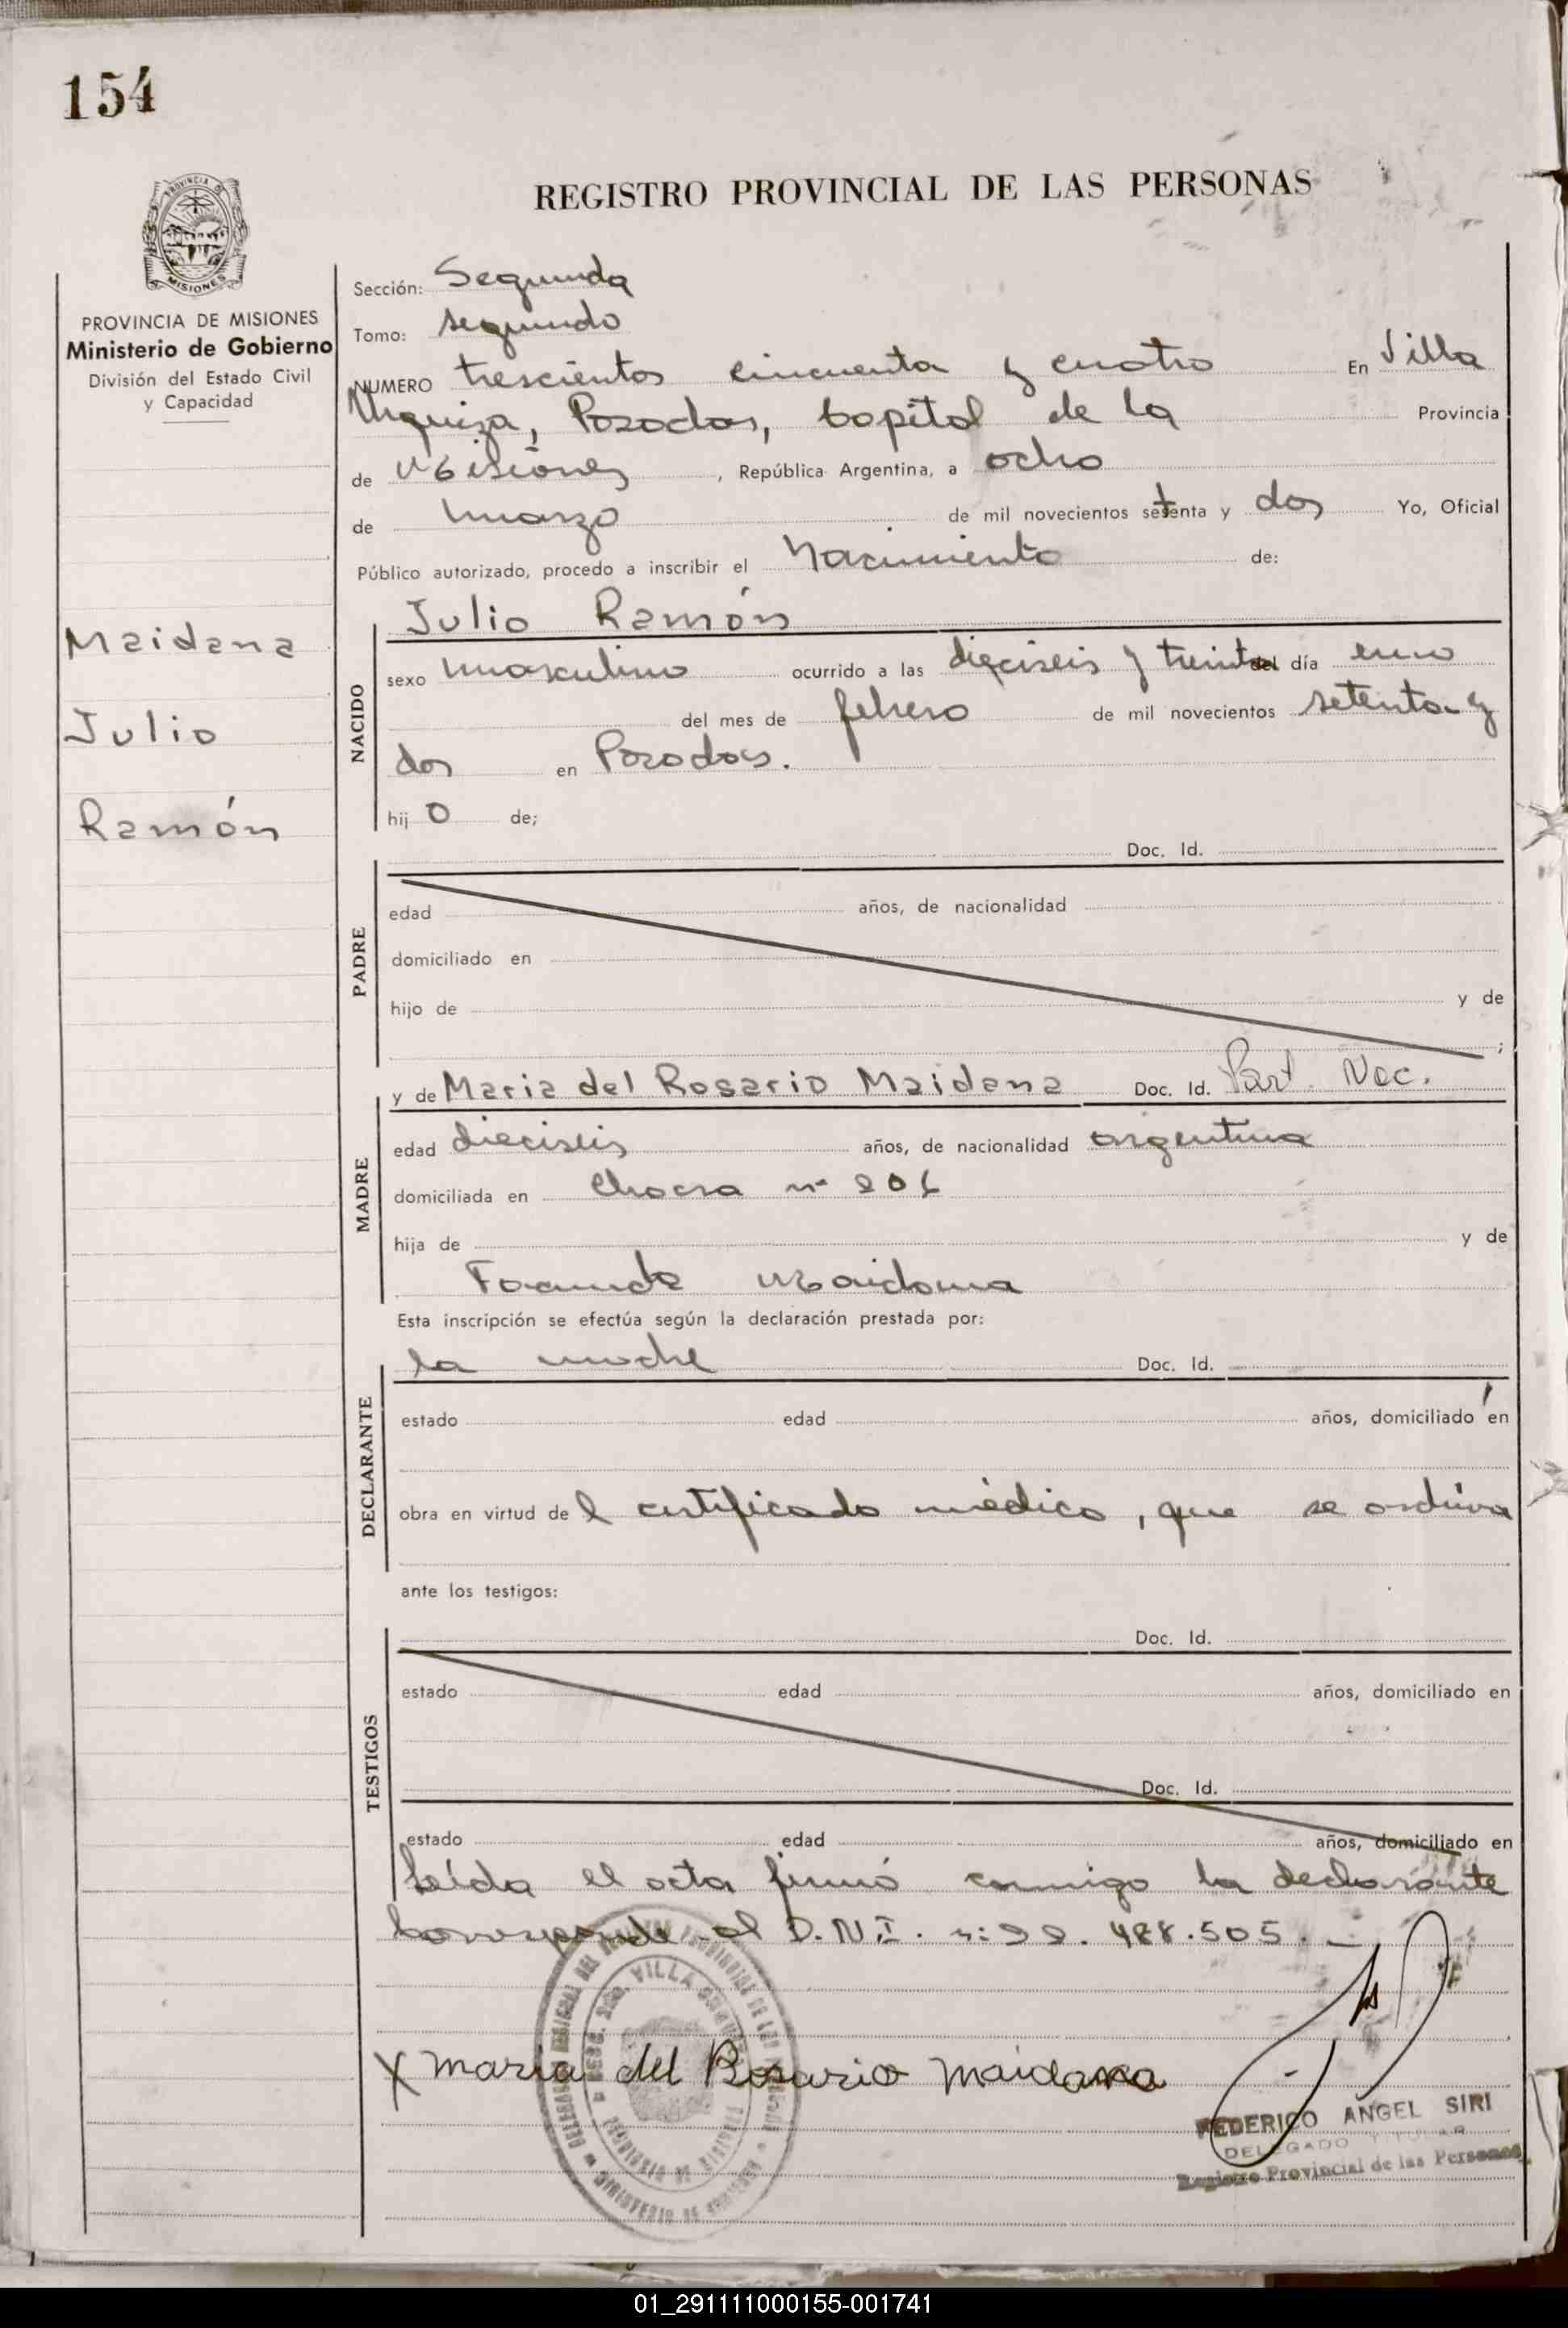 154
PROVINCIA DE
MISIONES
REGISTRO PROVINCIAL DE LAS PERSONAS
PROVINCIA DE MISIONES
Ministerio de Gobierno
División del Estado Civil
y Capacidad
Maidana
Julio
Ramón
Sección: Segunda
Tomo: segundo
NUMERO trescientos cincuenta y cuatro En Villa
Urquiza, Posadas, Capital de la Provincia
de Misiones, República Argentina, a ocho
de marzo de mil novecientos setenta y dos Yo, Oficial
Público autorizado, procedo a inscribir el Nacimiento de:
Julio Ramón
NACIDO
sexo masculino ocurrido a las dieciseis y treinta del día
del mes de febrero de mil novecientos setenta y
dos en Posadas.
hij o de;
Doc. Id.
PADRE
edad años, de nacionalidad
domiciliado en
hijo de y de
;
y de Maria del Rosario Maidana Doc. Id. Part. Nac.
MADRE
edad dieciseis años, de nacionalidad argentina
domiciliada en Chacra nº
hija de y de
Maidana
Esta inscripción se efectúa según la declaración prestada por:
la madre Doc. Id.
DECLARANTE
estado edad años, domiciliado en
obra en virtud de l certificado médico, que se archiva
ante los testigos:
Doc. Id.
TESTIGOS
estado edad años, domiciliado en
Doc. Id.
estado edad años, domiciliado en
Leída el acta firmó conmigo la declarante
Corresponde al D.N.I. 488.505. —
VILLA
X maria del Rosario maidana
FEDERICO ANGEL SIRI
DELEGADO TITULAR
Registro Provincial de las Personas
01_291111000155-001741